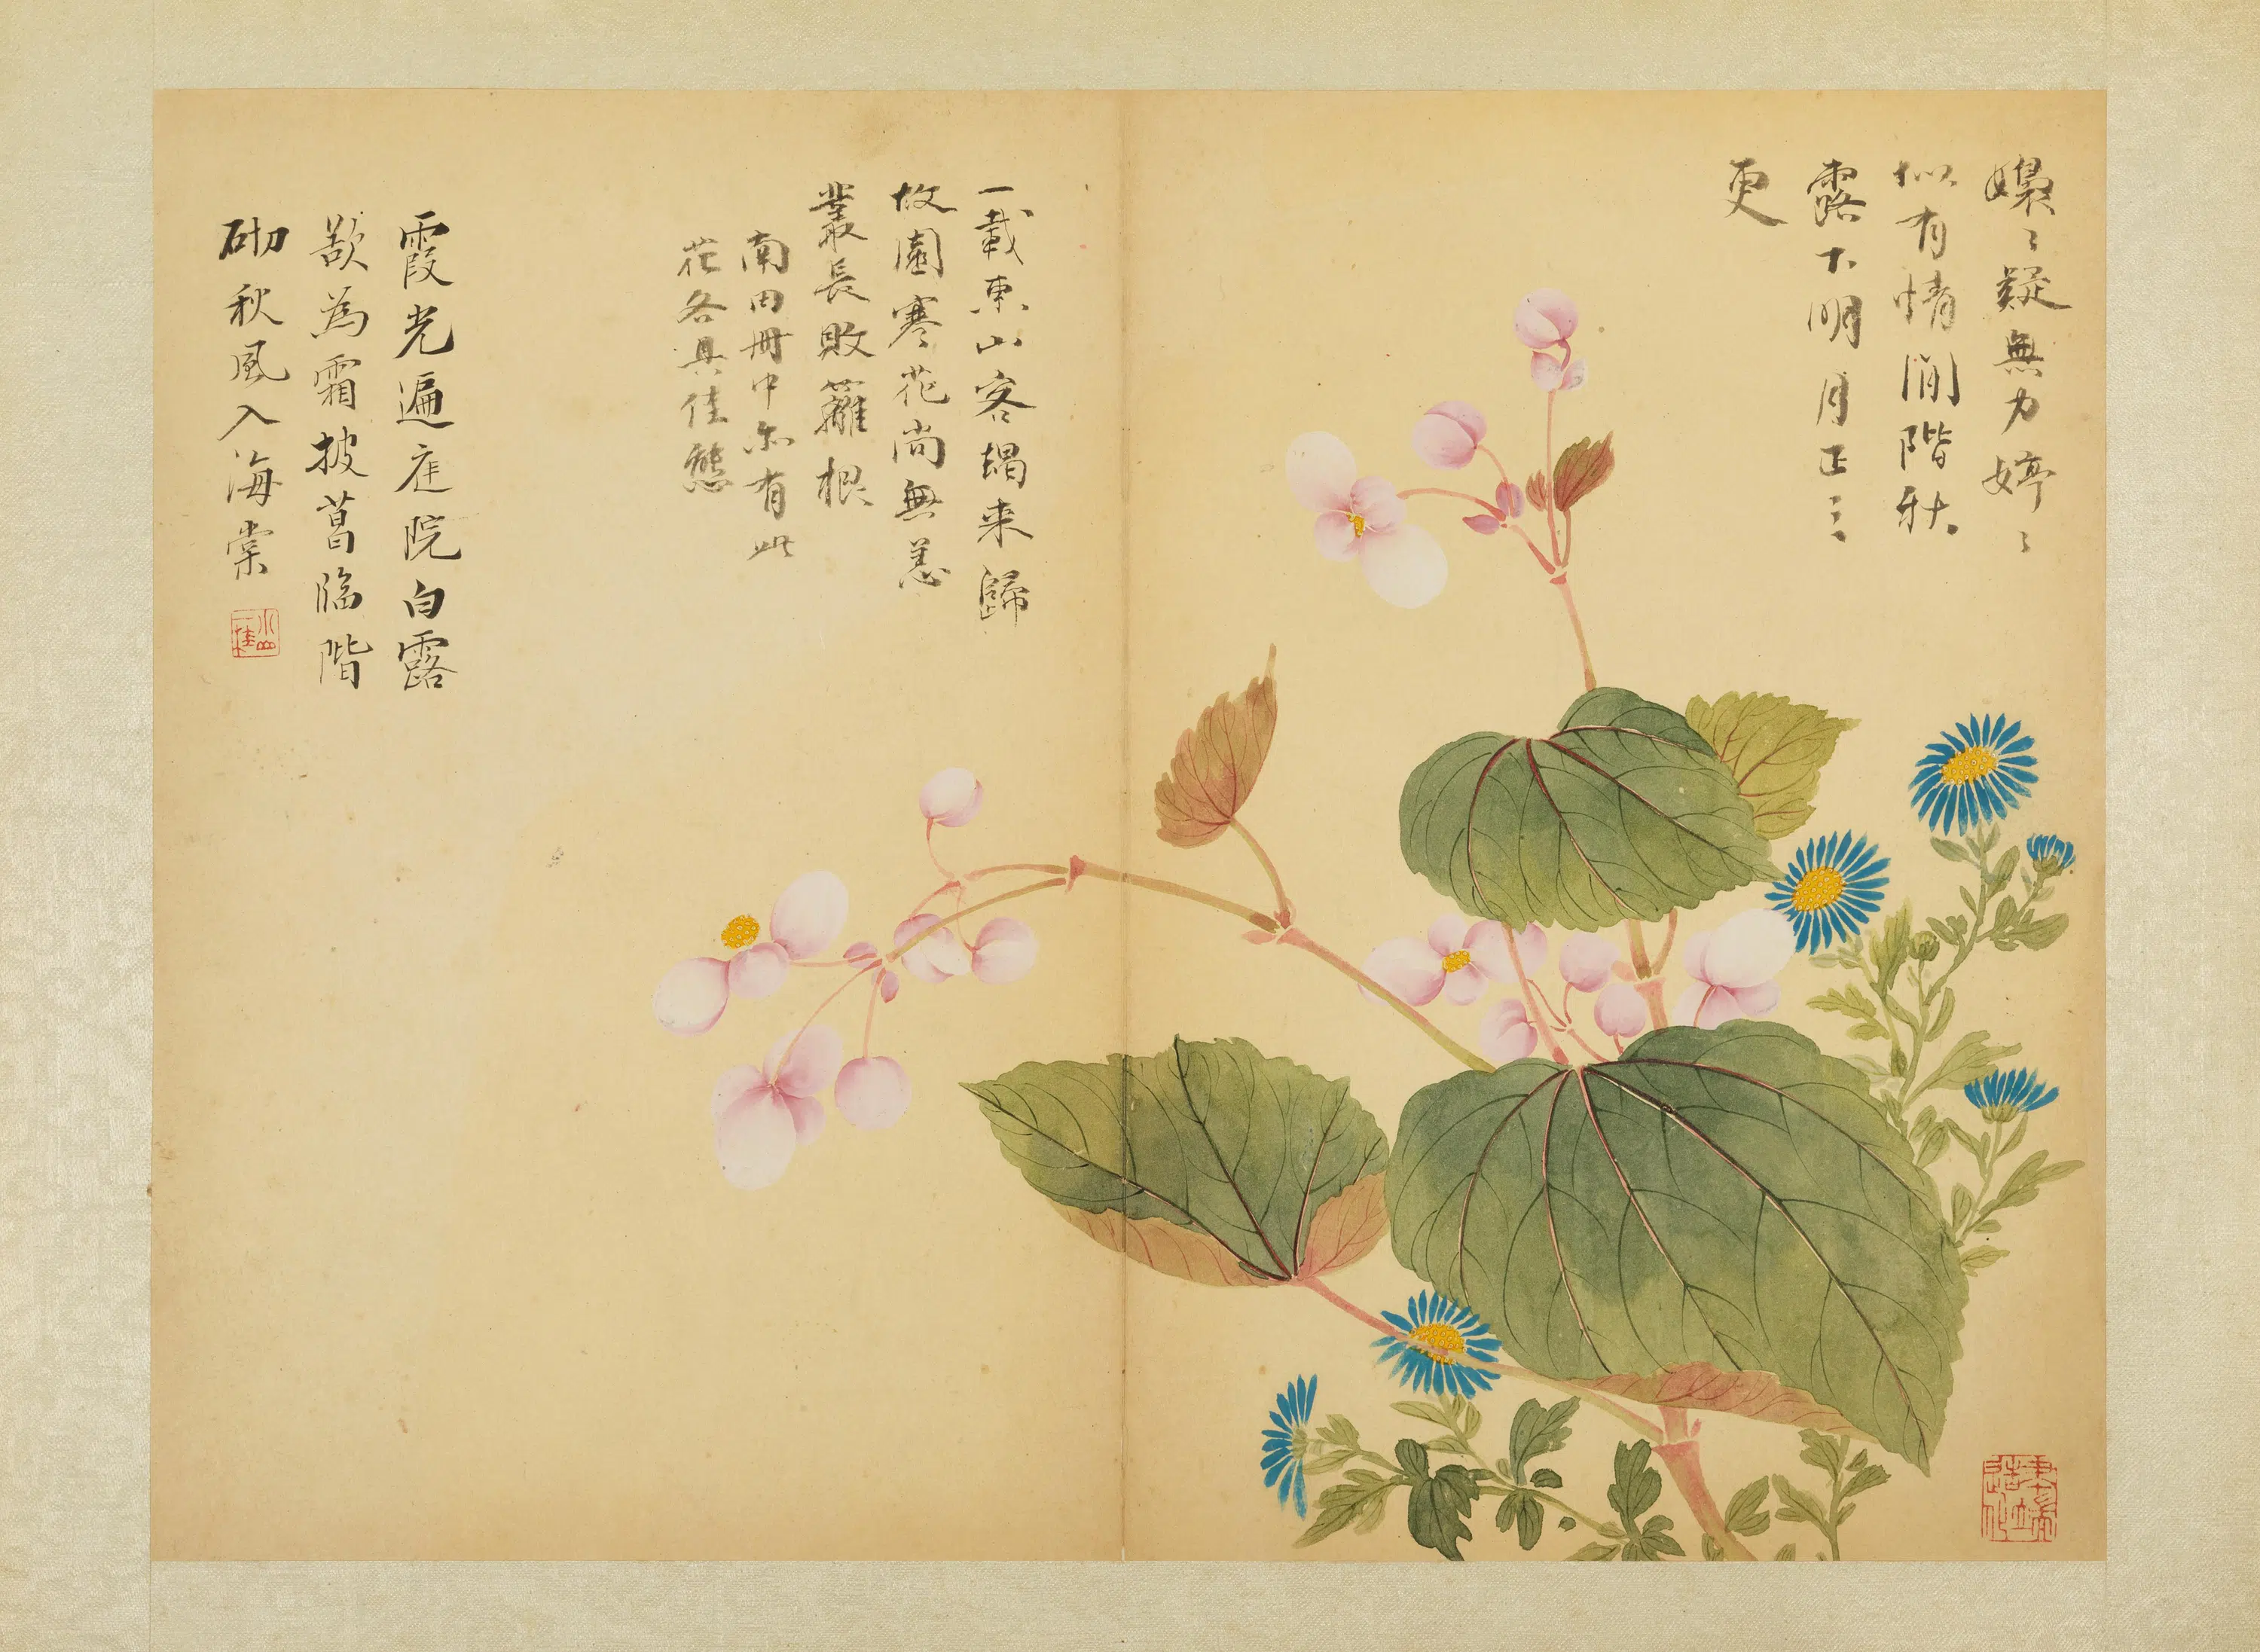 嬝〻疑無力婷〻
似有情閒階秋
露下明月正三
更
一載東山客朅来歸
故園寒花尚無恙
叢長敗籬根
南田冊中亦有此
花各具佳態
霞光遍庭院白露
歘為霜披菖臨階
砌秋風入海棠
小山
一桂